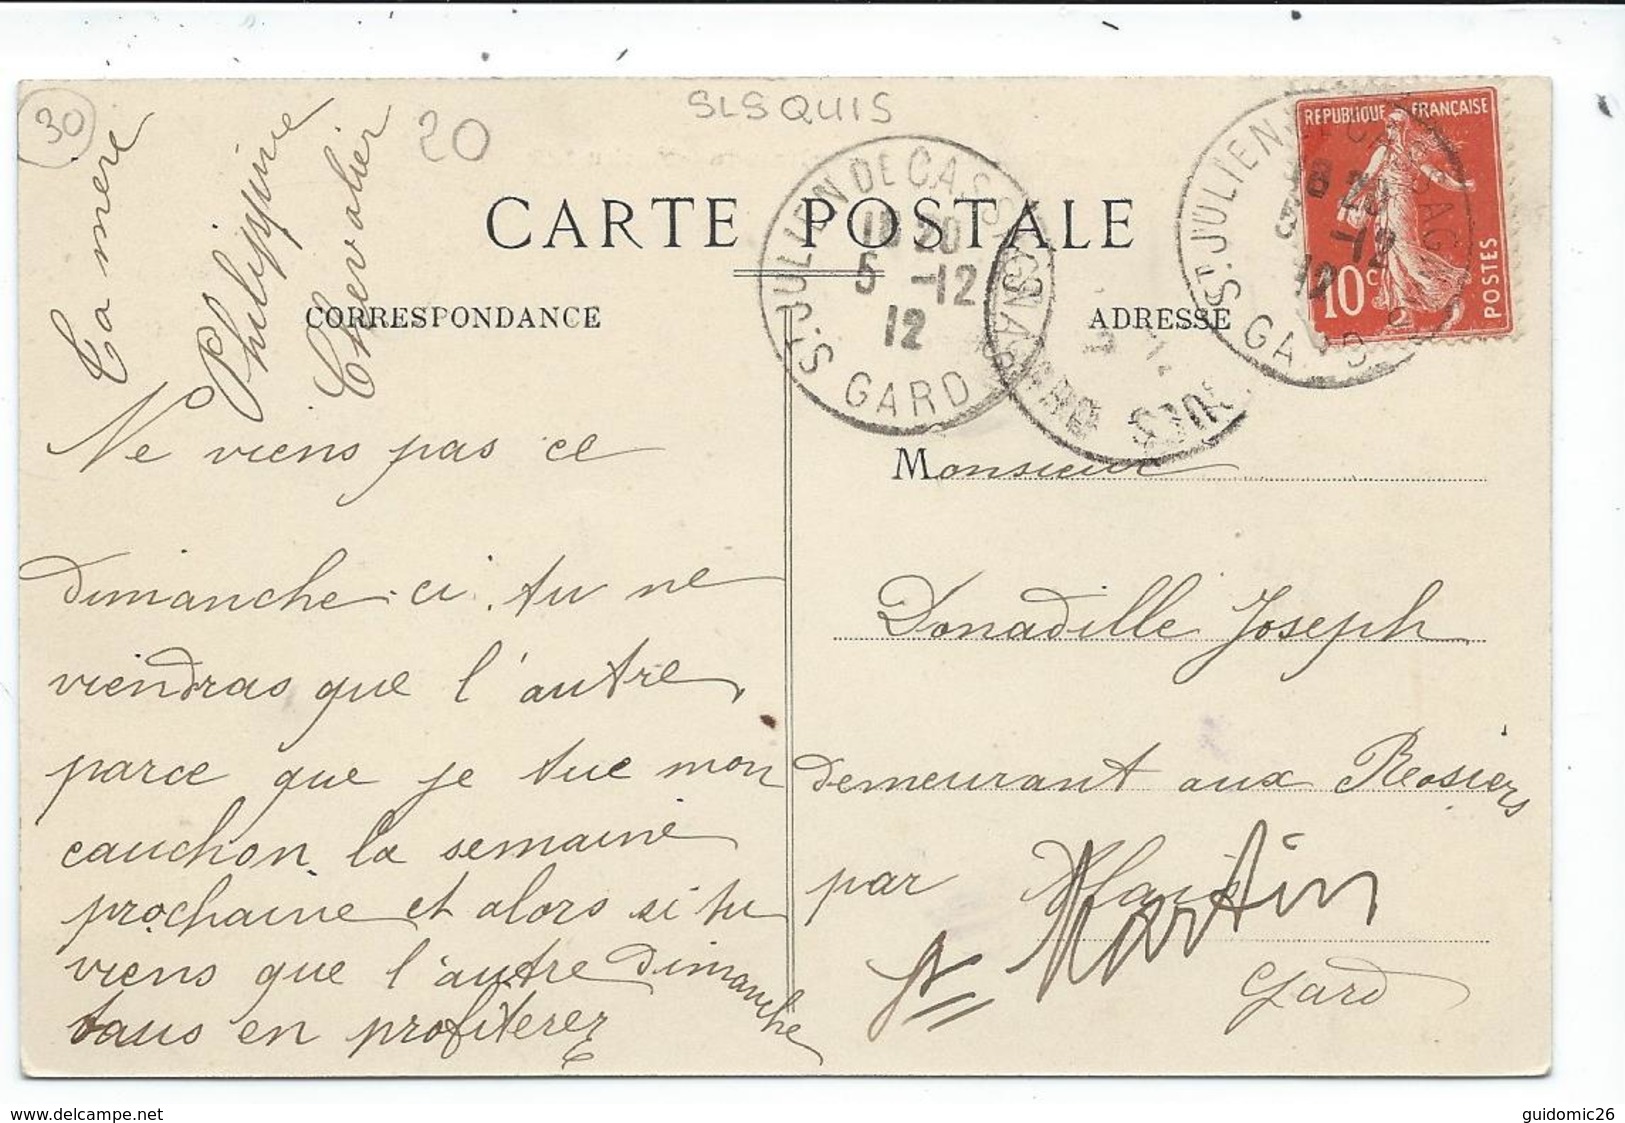 30
20
SLSQUIS
CARTE POSTALE
CORRESPONDANCE
ADRESSE
REPUBLIQUE FRANÇAISE
10c
POSTES
ST JULIEN DE CASSAGNAS
18 20
5 -12
12
GARD
ST JULIEN DE CASSAGNAS
18 20
5 -12
12
GARD
Ta mere
Philippine
Chevalier
Ne viens pas ce
dimanche ci. tu ne
viendras que l'autre,
parce que je tue mon
cauchon la semaine
prochaine et alors si tu
viens que l'autre dimanche
vous en profiterez
Monsieur
Donadille Joseph
demeurant aux Rosiers
par
St Martin
Gard
www.delcampe.net
guidomic26